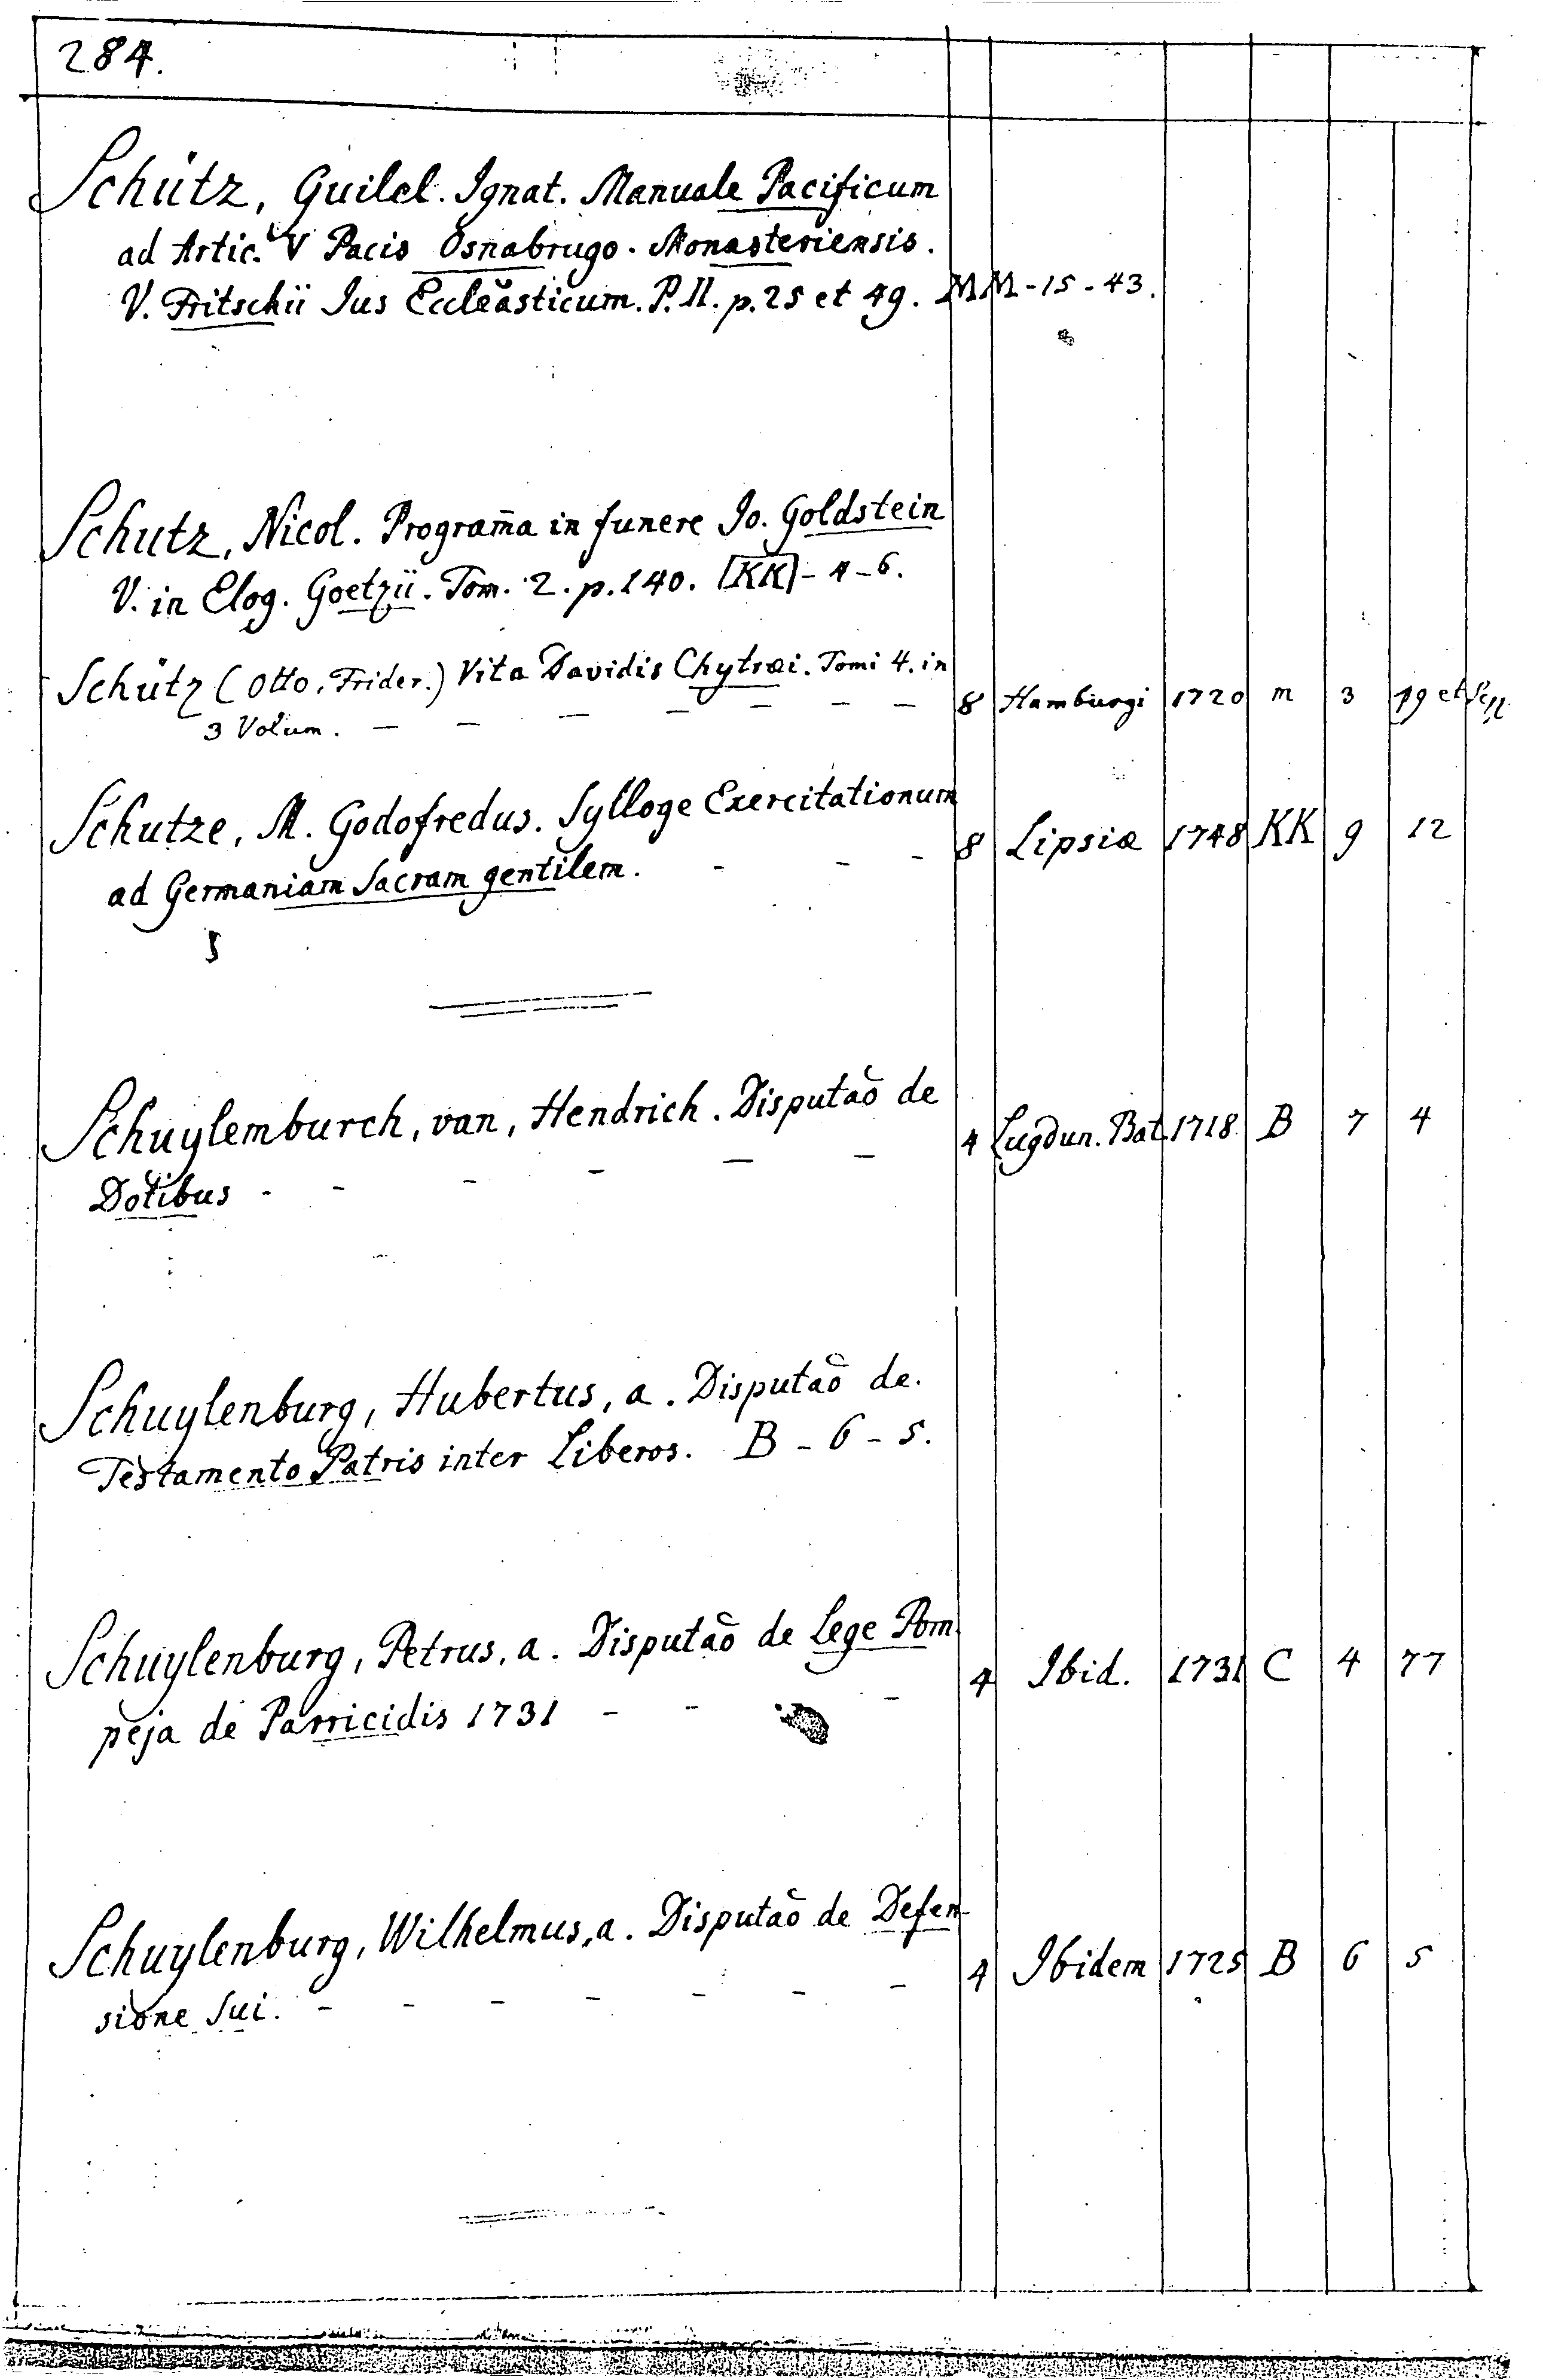 284.
Schütz, Guilel. Ignat. Manuale Pacificum
ad Artic. V Pacis Osnabrugo-Monasteriensis.
V. Fritschii Jus Eccleasticum. P. II. p. 25 et 49. MM-15-43.
Schutz, Nicol. Programa in funere Jo. Goldstein
V. in Elog. Goetzii. Tom. 2. p. 140. [KK]-4-6.
Schütz (Otto, Frider.) Vita Davidis Chytræi. Tomi 4. in
3 Volum. - - - - - - - 8 Hamburgi 1720 m 3 19 et
Schutze, M. Godofredus. Sylloge Exercitationum
ad Germaniam Sacram gentilem. - - - 8 Lipsiæ 1748 KK 9 12
Schuylemburch, van, Hendrich. Disputaõ de
Dotibus - - - - - - 4 Lugdun. Bat. 1718. B 7 4
Schuylenburg, Hubertus, a. Disputaõ de.
Testamento Patris inter Liberos. B-6-5.
Schuylenburg, Petrus, a. Disputaõ de Lege Pom
peja de Parricidis 1731 - - - 4 Ibid. 1731 C 4 77
Schuylenburg, Wilhelmus, a. Disputaõ de Defen-
sione Sui. - - - - - - - 4 Ibidem 1725 B 6 5